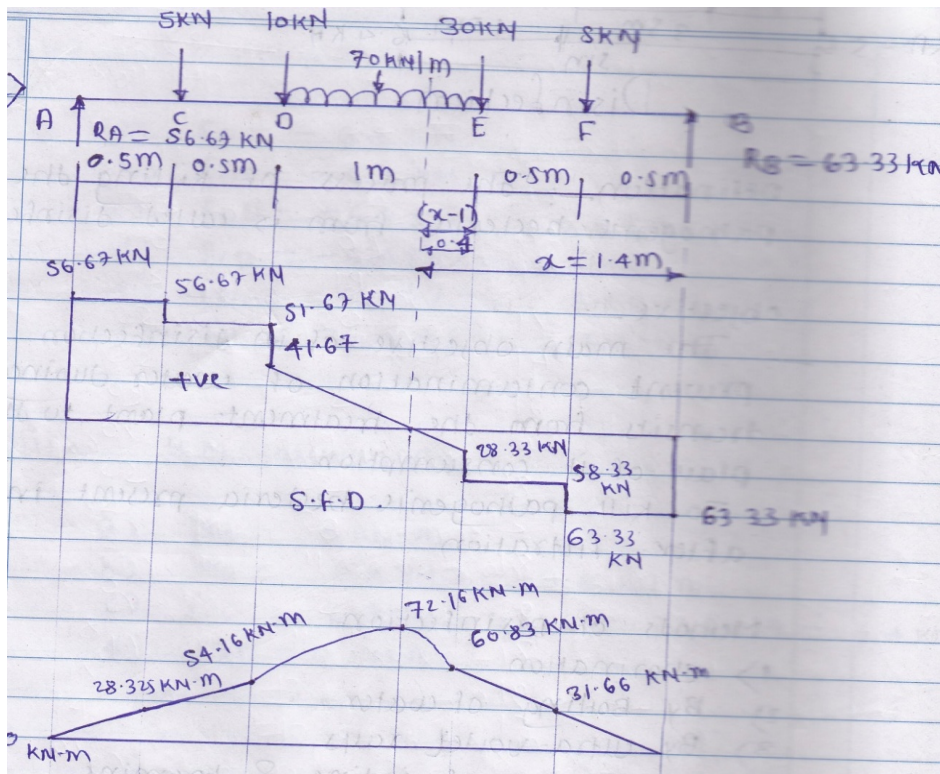 5KN 10KN 30KN 8KN
70KN/m
A C D E F B
RA = 56.67 KN
RB = 63.33 KN
0.5m 0.5m 1m 0.5m 0.5m
(x-1)
0.4
x = 1.4m
56.67 KN
56.67 KN
51.67 KN
41.67
+ve
28.33 KN
58.33
KN
S.F.D.
63.33 KN
63.33
KN
72.16 KN-m
54.16 KN-m
60.83 KN-m
28.325 KN-m
31.66 KN-m
KN-m